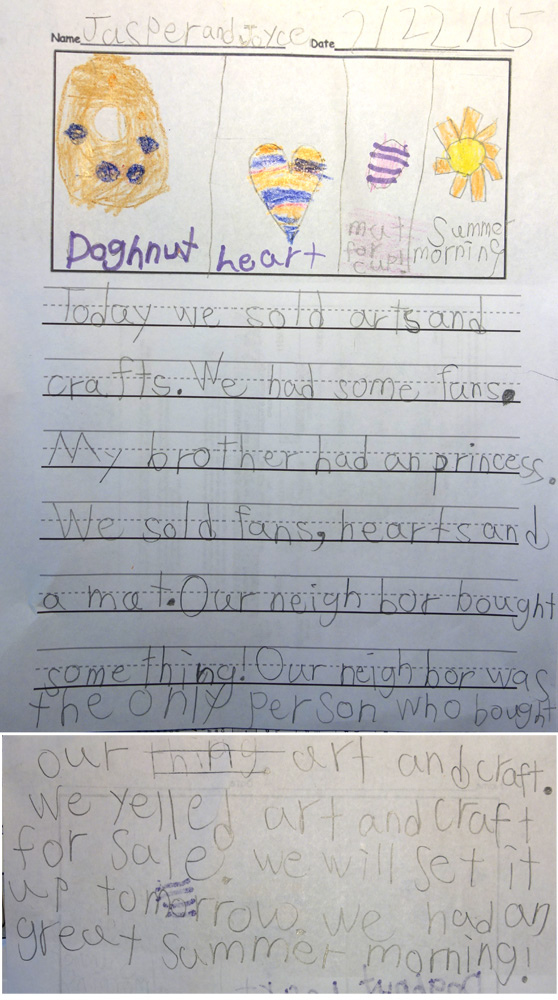 Name Jasper and Joyce Date 7/22/15
Doghnut heart mat for cup! Summer morning
Today we sold arts and
crafts. We had some fans.
My brother had an princess.
We sold fans, hearts and
a mat. Our neighbor bought
something! Our neighbor was
the only person who bought
our thing art and craft.
We yelled art and craft
for sale. we will set it
up tomorrow. we had an
great summer morning!